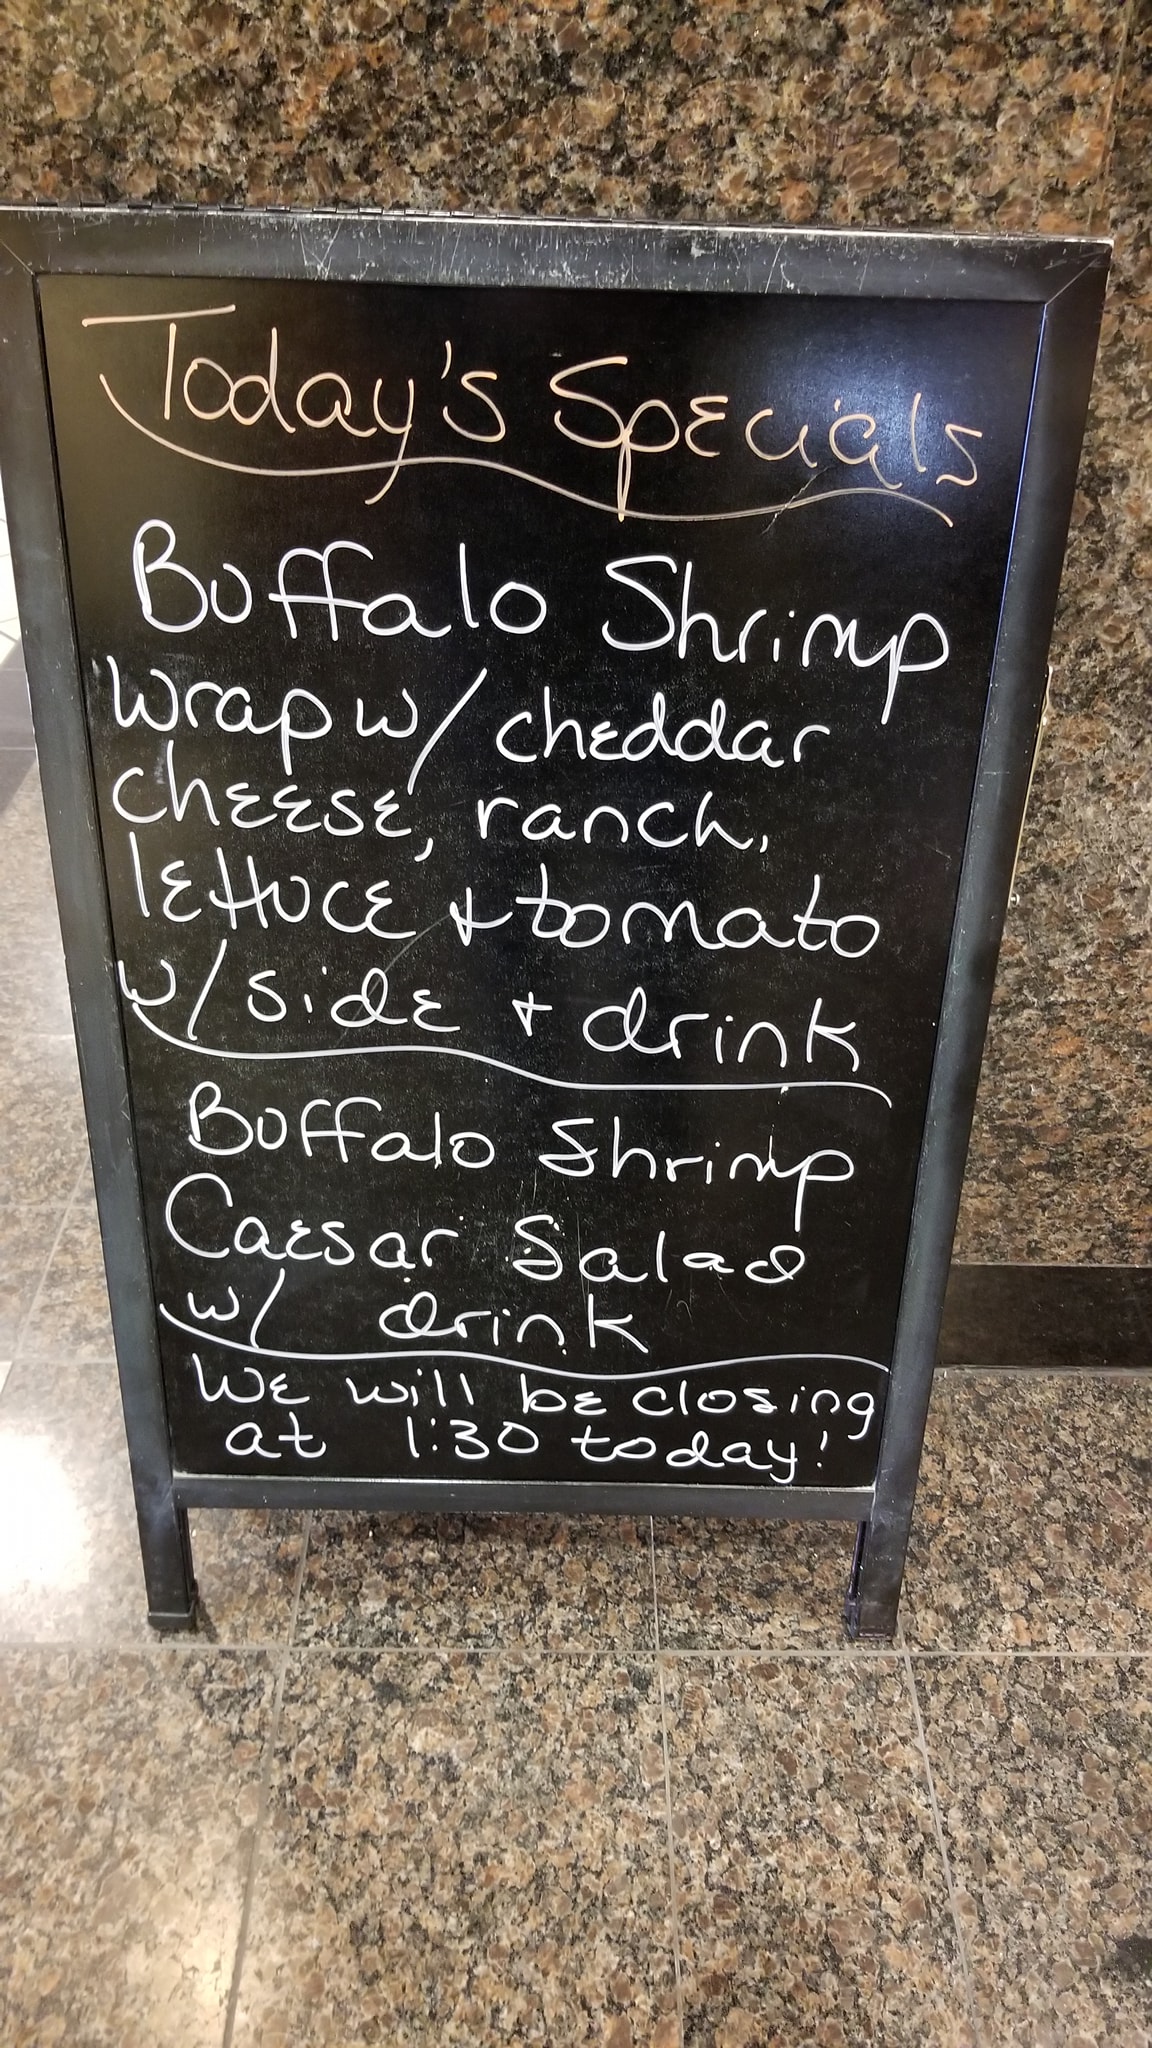 Today's Specials
Buffalo Shrimp
Wrap w/ cheddar
cheese, ranch,
lettuce + tomato
w/ side + drink
Buffalo Shrimp
Caesar Salad
w/ drink
We will be closing
at 1:30 today!